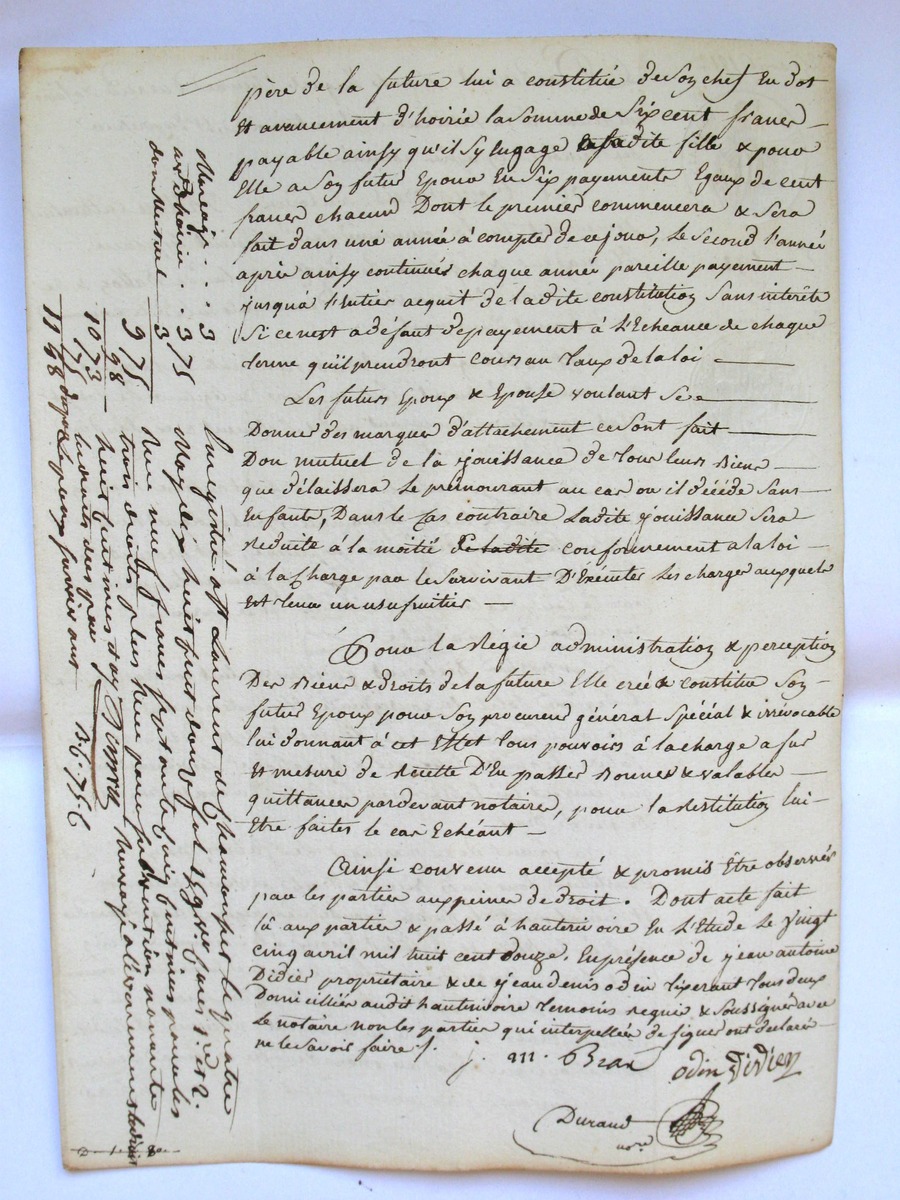 père de la future lui a constitué de Soy chef En dot
Et avancement d'hoirie la Somme de Six cent francs
payable ainsy qu'il S'y Engage ladite fille & pour
Elle a Soy futur Epoux En Six payements Egaux de cent
francs chacun Dont le premier commencera & Sera
fait dans une année à compter de ce jour, le Second l'année
après ainsy continués chaque année pareille payement
jusqu'à l'Entier acquit de la dite constitution Sans intérêts
Si ce n'est a défaut de payement à L'Echeance de chaque
terme qu'ils prendront cours au Taux de la loi
Les futurs Epoux & Epouse voulant Se
Donner des marques d'attachement ce Sont fait
Don mutuel de la jouissance de Tous leurs Biens
que délaissera le prémourant au cas ou il décéde Sans
Enfants, Dans le Cas contraire Ladite jouissance Sera
Réduite à la moitié de ladite conformement a la loi
à la Charge par le Survivant D'Exécuter les charges auxquels
Est tenu un usufruitier
Pour la Régie administration & perception
Des Biens & droits de la future Elle crée & constitue Soy
futur Epoux pour Soy procureur général Spécial & irrévocable
lui donnant à cet Effet Tous pouvoirs à la charge a fur
Et mesure de Recette D'En passer Bonnes & valables
quittances pardevant notaires, pour la Restitution lui
Être faites le cas Echéant
Ainsi convenu accepté & promis Être observés
par les parties aux peines de droit. Dont acte fait
lû aux parties & passé à hauterivoire En L'Etude Le vingt
cinq avril mil huit cent douze. En présence de jean antoine
Didier propriétaire & de jean denis odin Tixerant Tous deux
Domiciliés audit hauterivoire temoins requis & Soussignés avec
Le notaire non les parties qui interpellées de Signer ont déclaré
ne le Savoir faire /.
j. m. Bras odin Didier
Durand
not.re
Mariage . . . 3
. . 3 75
don Mutuel 3
9 75
98
10 73
75
11 48
Enregistré à St Laurent de Chamousset le quatre
May dix huit cent douze fol.
neuf francs soixante quinze centimes pour les
trois droits plus
huit centimes